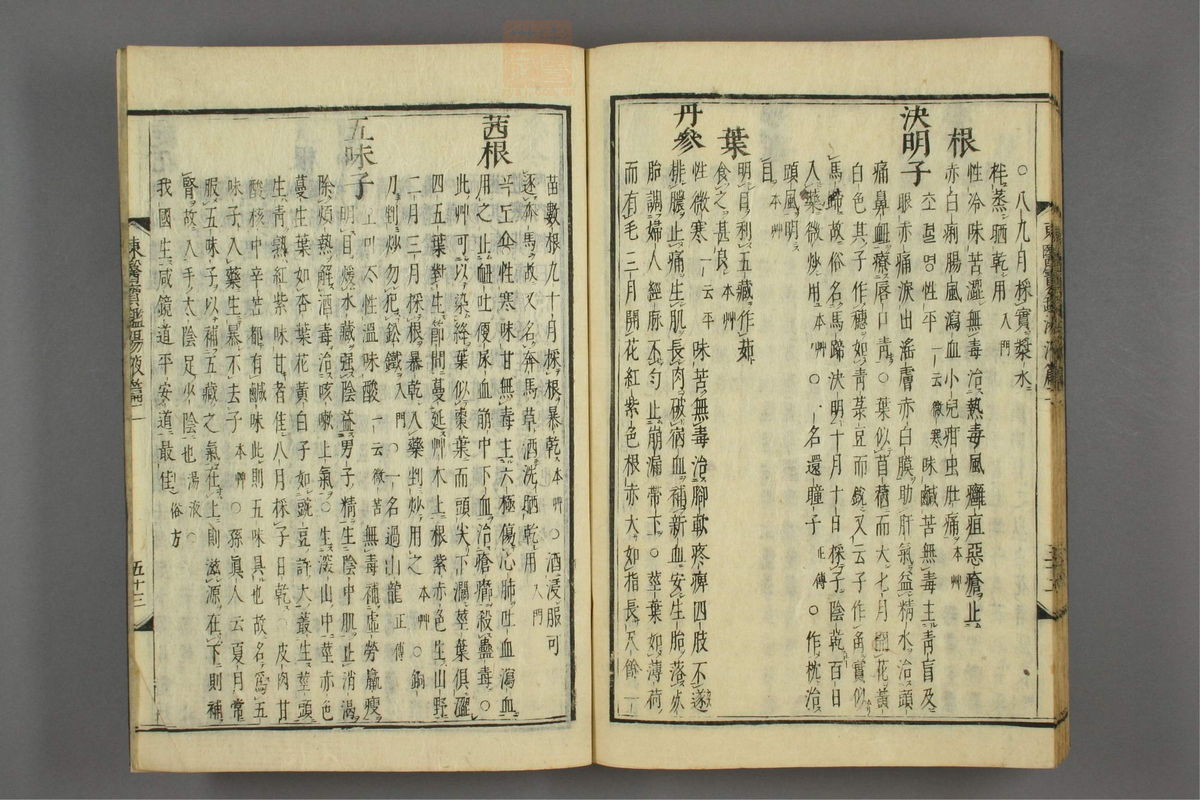 ○八九月採實漿水
拌蒸晒乾用入門
根
性冷味苦澁無毒治熱毒風癰疽惡瘡止
赤白痢腸風瀉血小兒疳虫肚痛本艸
決明子
초결명性平一云微寒味鹹苦無毒主靑盲及
眼赤痛淚出滛膚赤白膜助肝氣益精水治頭
痛鼻衄療唇口靑○葉似苜蓿而大七月開花黃
白色其子作穗如靑菉豆而銳又云子作角實似
馬蹄故俗名馬蹄決明十月十日採子陰乾百日
入藥微炒用本艸○一名還瞳子正傳○作枕治
頭風明
目本艸
葉
明目利五藏作茹
食之甚良本艸
丹參
性微寒一云平味苦無毒治脚軟疼痺四肢不遂
排膿止痛生肌長肉破宿血補新血安生胎落死
胎調婦人經脉不勻止崩漏帶下○莖葉如薄荷
而有毛三月開花紅紫色根赤大如指長尺餘一
苗數根九十月採根暴乾本艸○酒浸服可
逐奔馬故又名奔馬草酒洗晒乾用入門
茜根
性寒味甘無毒主六極傷心肺吐血瀉血
用之止衄吐便尿血崩中下血治瘡癤殺蠱毒○
此艸可以染絳葉似棗葉而頭尖下濶莖葉俱澁
四五葉對生節間蔓延艸木上根紫赤色生山野
二月三月採根暴乾入藥剉炒用之本艸○銅
刀剉炒勿犯鉛鐵入門○一名過山龍正傳
五味子
性溫味酸一云微苦無毒補虛勞羸瘦
明目煖水藏强陰益男子精生陰中肌止消渴
除煩熱解酒毒治咳嗽上氣○生深山中莖赤色
蔓生葉如杏葉花黃白子如豌豆許大叢生莖頭
生靑熟紅紫味甘者佳八月採子日乾○皮肉甘
酸核中辛苦都有鹹味此則五味具也故名爲五
味子入藥生暴不去子本艸○孫眞人云夏月常
服五味子以補五藏之氣在上則滋源在下則補
腎故入手太陰足少陰也湯液○
我國生咸鏡道平安道最佳俗方
東醫寶鑑湯液篇
五十三